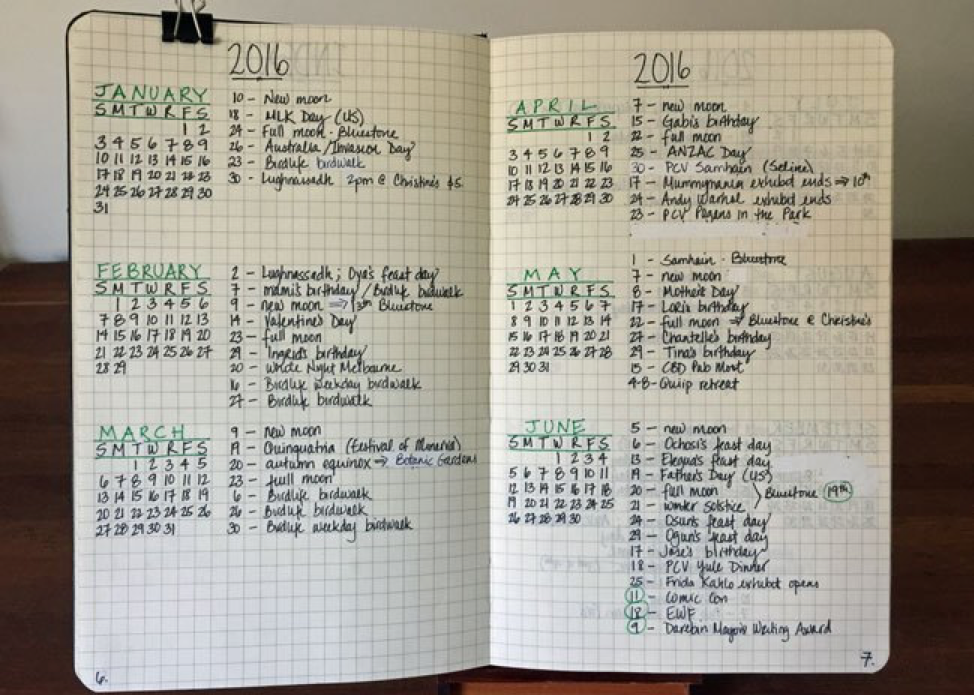 2016
JANUARY
S M T W R F S
1 2
3 4 5 6 7 8 9
10 11 12 13 14 15 16
17 18 19 20 21 22 23
24 25 26 27 28 29 30
31
10 - New moon
18 - MLK Day (US)
24 - Full moon - Bluestone
26 - Australia/Invasion Day
23 - Birdlife birdwalk
30 - Lughnassadh 2pm @ Christine's $5
FEBRUARY
S M T W R F S
1 2 3 4 5 6
7 8 9 10 11 12 13
14 15 16 17 18 19 20
21 22 23 24 25 26 27
28 29
2 - Lughnassadh; Oya's feast day
7 - mami's birthday / Birdlife birdwalk
9 - new moon ⇒ 13th Bluestone
14 - Valentine's Day
23 - full moon
29 - Ingrid's birthday
20 - White Night Melbourne
16 - Birdlife weekday birdwalk
27 - Birdlife birdwalk
MARCH
S M T W R F S
1 2 3 4 5
6 7 8 9 10 11 12
13 14 15 16 17 18 19
20 21 22 23 24 25 26
27 28 29 30 31
9 - new moon
19 - Quinquatria (Festival of Minerva)
20 - autumn equinox → Botanic Gardens
23 - full moon
6 - Birdlife birdwalk
26 - Birdlife birdwalk
30 - Birdlife weekday birdwalk
6.
2016
APRIL
S M T W R F S
1 2
3 4 5 6 7 8 9
10 11 12 13 14 15 16
17 18 19 20 21 22 23
24 25 26 27 28 29 30
7 - new moon
15 - Gabi's birthday
22 - full moon
25 - ANZAC Day
30 - PCV Samhain (Seline)
17 - Mummymania exhibit ends ⇒ 10th
24 - Andy Warhol exhibit ends
23 - PCV Pagans in the Park
MAY
S M T W R F S
1 2 3 4 5 6 7
8 9 10 11 12 13 14
15 16 17 18 19 20 21
22 23 24 25 26 27 28
29 30 31
1 - Samhain - Bluestone
7 - new moon
8 - Mother's Day
17 - Lori's birthday
22 - full moon ⇒ Bluestone @ Christine's
27 - Chantelle's birthday
29 - Tina's birthday
15 - CBD Pub Moot
4-8 - Quiip retreat
JUNE
S M T W R F S
1 2 3 4
5 6 7 8 9 10 11
12 13 14 15 16 17 18
19 20 21 22 23 24 25
26 27 28 29 30
5 - new moon
6 - Ochosi's feast day
13 - Elegua's feast day
19 - Father's Day (US)
20 - full moon
21 - winter solstice > Bluestone 19th
24 - Osun's feast day
29 - Ogun's feast day
17 - Jose's birthday
18 - PCV Yule Dinner
25 - Frida Kahlo exhibit opens
11 - Comic Con
18 - EWF
9 - Darebin Mayor's Writing Award
7.